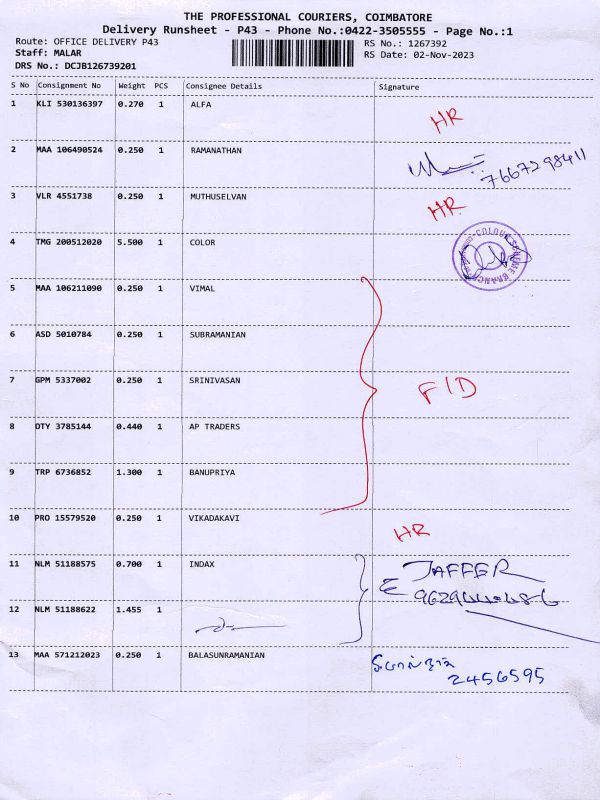 THE PROFESSIONAL COURIERS, COIMBATORE
Delivery Runsheet - P43 - Phone No.:0422-3505555 - Page No.:1
Route: OFFICE DELIVERY P43
RS No.: 1267392
Staff: MALAR
RS Date: 02-Nov-2023
DRS No.: DCJB126739201
S No Consignment No Weight PCS Consignee Details Signature
1 KLI 530136397 0.270 1 ALFA HR
2 MAA 106490524 0.250 1 RAMANATHAN 7667298411
3 VLR 4551738 0.250 1 MUTHUSELVAN HR
4 TMG 200512020 5.500 1 COLOR
5 MAA 106211090 0.250 1 VIMAL
6 ASD 5010784 0.250 1 SUBRAMANIAN
7 GPM 5337002 0.250 1 SRINIVASAN FID
8 OTY 3785144 0.440 1 AP TRADERS
9 TRP 6736852 1.300 1 BANUPRIYA
10 PRO 15579520 0.250 1 VIKADAKAVI HR
11 NLM 51188575 0.700 1 INDAX JAFFER
12 NLM 51188622 1.455 1
13 MAA 571212023 0.250 1 BALASUNRAMANIAN 2456595